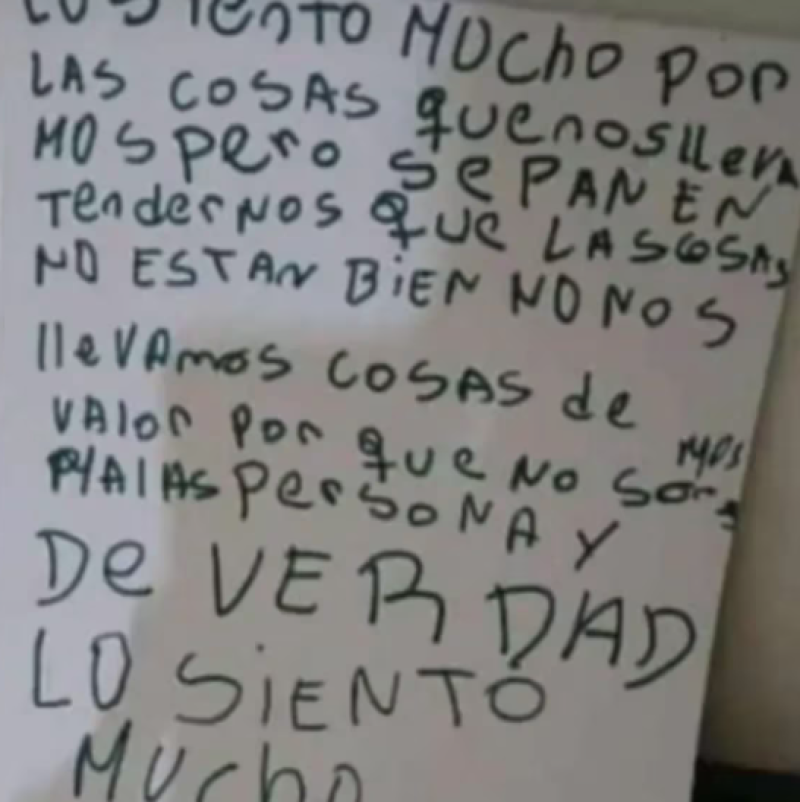 LO SIENTO MUCHO POR
LAS COSAS quenoslleva
MOS pero SEPAN EN
TenderNOS QUE LASCOSAS
NO ESTAN BIEN NO NOS
llevAmos COSAS de
VAlor Por que NO SOMOS
MAlAs PersONA Y
De VERDAD
LO SiENTO
MUcho